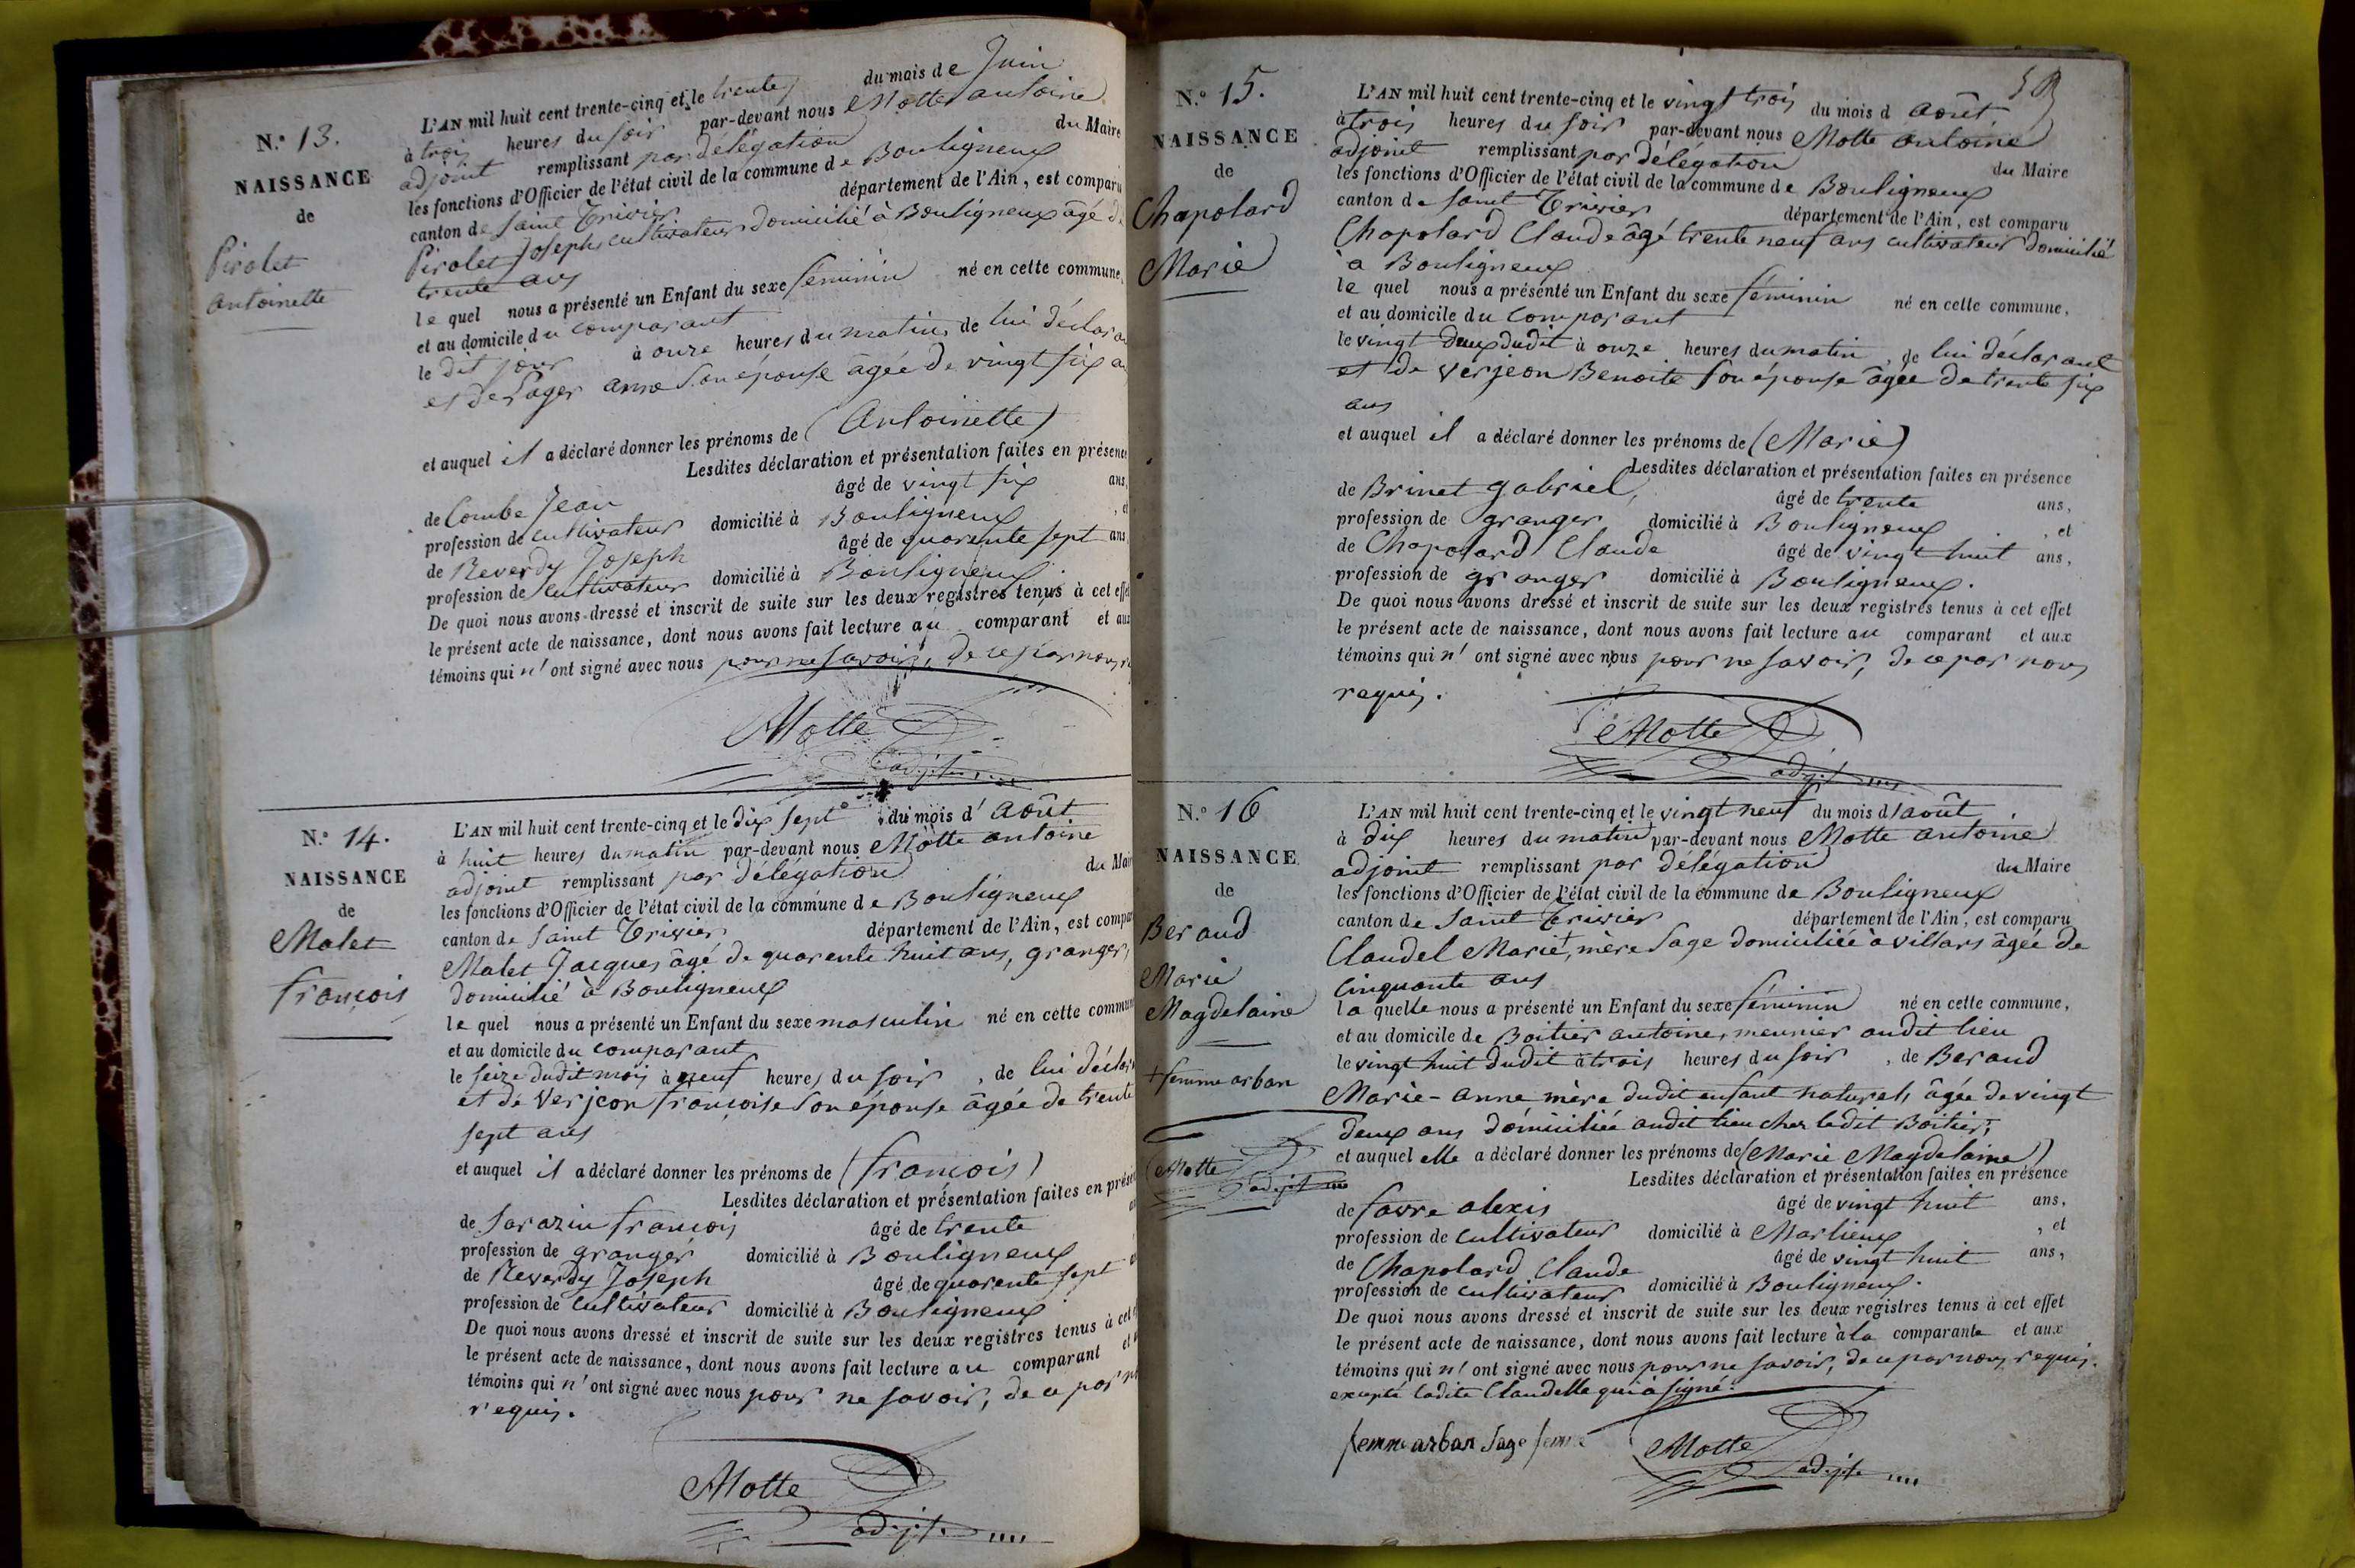 N.° 13.
NAISSANCE
de
Pirolet
antoinette
L'AN mil huit cent trente-cinq et le trente du mois de Juin
à trois heures du soir par-devant nous Motte antoine
adjoint remplissant par délégation du Maire
les fonctions d'Officier de l'état civil de la commune de Bouligneux
canton de Saint Trivier département de l'Ain, est comparu
Pirolet Joseph cultivateur domicilié à Bouligneux âgé de
trente ans
lequel nous a présenté un Enfant du sexe féminin né en cette commune,
et au domicile du comparant
le dit jour à onze heures du matin de lui déclarant
et de Pager anne son épouse âgée de vingt six ans
et auquel il a déclaré donner les prénoms de (Antoinette)
Lesdites déclaration et présentation faites en présence
de Combe Jean âgé de vingt six ans,
profession de cultivateur domicilié à Bouligneux , et
de Reverdy Joseph âgé de quarente sept ans
profession de cultivateur domicilié à Bouligneux.
De quoi nous avons dressé et inscrit de suite sur les deux registres tenus à cet effet
le présent acte de naissance, dont nous avons fait lecture au comparant et aux
témoins qui n' ont signé avec nous pour ne savoir, de ce par nous
Motte
adjt
N.° 14.
NAISSANCE
de
Malet
françois
L'AN mil huit cent trente-cinq et le dix sept du mois d'août
à huit heures du matin par-devant nous Motte antoine
adjoint remplissant par délégation du Maire
les fonctions d'Officier de l'état civil de la commune de Bouligneux
canton de Saint Trivier département de l'Ain, est comparu
Malet Jacques âgé de quarente huit ans, granger,
domicilié à Bouligneux
lequel nous a présenté un Enfant du sexe masculin né en cette commune
et au domicile du comparant
le seize dudit mois à neuf heures du soir , de lui déclarant
et de Verjeon françoise son épouse âgée de trente
sept ans
et auquel il a déclaré donner les prénoms de (françois)
Lesdites déclaration et présentation faites en présence
de Sarazin françois âgé de trente
profession de granger domicilié à Bouligneux
de Reverdy Joseph âgé de quarente sept
profession de cultivateur domicilié à Bouligneux.
De quoi nous avons dressé et inscrit de suite sur les deux registres tenus à cet
le présent acte de naissance, dont nous avons fait lecture au comparant et
témoins qui n' ont signé avec nous pour ne savoir, de ce par nous
requis.
Motte
adjt
59
N.° 15.
NAISSANCE
de
Chapolard
Marie
L'AN mil huit cent trente-cinq et le vingt trois du mois d août
à trois heures du soir par-devant nous Motte antoine
adjoint remplissant par délégation du Maire
les fonctions d'Officier de l'état civil de la commune de Bouligneux
canton de Saint Trivier département de l'Ain, est comparu
Chapolard Claude âgé trente neuf ans cultivateur domicilié
à Bouligneux
lequel nous a présenté un Enfant du sexe féminin né en cette commune,
et au domicile du comparant
le vingt deux dudit à onze heures du matin , de lui déclarant
et de Verjeon Benoite son épouse âgée de trente six
ans
et auquel il a déclaré donner les prénoms de (Marie)
Lesdites déclaration et présentation faites en présence
de Brinet gabriel, âgé de trente ans,
profession de granger domicilié à Bouligneux , et
de Chapolard Claude âgé de vingt huit ans,
profession de granger domicilié à Bouligneux.
De quoi nous avons dressé et inscrit de suite sur les deux registres tenus à cet effet
le présent acte de naissance, dont nous avons fait lecture au comparant et aux
témoins qui n' ont signé avec nous pour ne savoir, de ce par nous
requis.
Motte
adjt
N.° 16
NAISSANCE
de
Beraud
Marie
Magdelaine
+ femme arban
Motte
adjt
L'AN mil huit cent trente-cinq et le vingt neuf du mois d'août
à dix heures du matin par-devant nous Motte antoine
adjoint remplissant par délégation du Maire
les fonctions d'Officier de l'état civil de la commune de Bouligneux
canton de Saint Trivier département de l'Ain, est comparu
Claudel Marie+, mère sage domiciliée à villars âgée de
cinquante ans
laquelle nous a présenté un Enfant du sexe féminin né en cette commune,
et au domicile de Boitier antoine, meunier audit lieu
le vingt huit dudit à trois heures du soir , de Beraud
Marie-anne mère dudit enfant naturel, âgée de vingt
deux ans domiciliée audit lieu chez ledit Boitier,
et auquel elle a déclaré donner les prénoms de (Marie Magdelaine)
Lesdites déclaration et présentation faites en présence
de favre alexis âgé de vingt huit ans,
profession de cultivateur domicilié à Marlieux , et
de Chapolard Claude âgé de vingt huit ans,
profession de cultivateur domicilié à Bouligneux.
De quoi nous avons dressé et inscrit de suite sur les deux registres tenus à cet effet
le présent acte de naissance, dont nous avons fait lecture à la comparante et aux
témoins qui n' ont signé avec nous pour ne savoir, de ce par nous requis.
excepté ladite Claudelle qui a signé.
femme arban sage femme
Motte
adjt